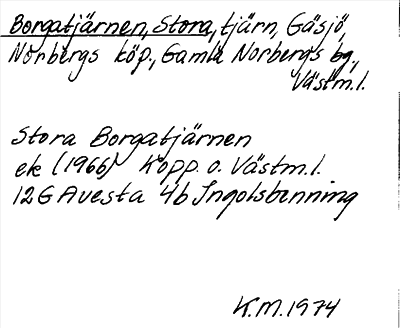 Borgatjärnen, Stora, tjärn, Gäsjö,
Norbergs köp., Gamla Norbergs bg.,
Västm.l.
Stora Borgatjärnen
ek (1966) Kopp. o. Västm.l.
12G Avesta 4b Ingolsbenning
K.M. 1974